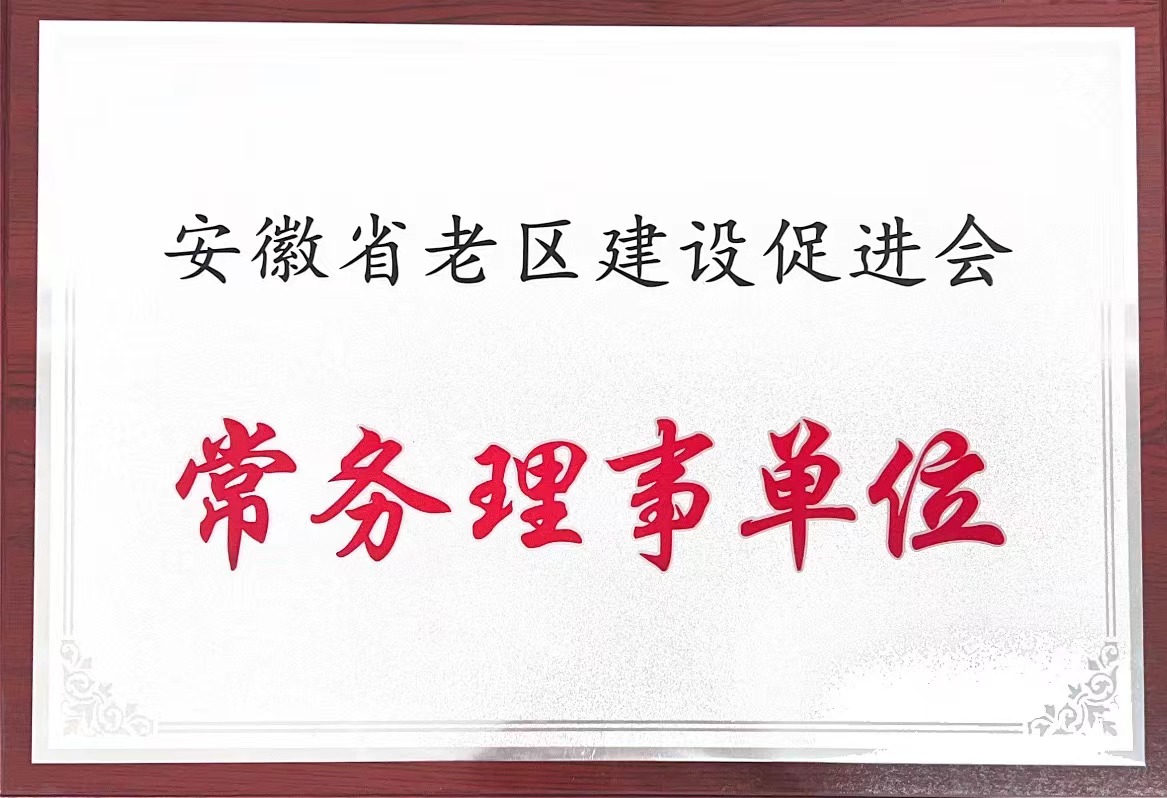 安徽省老区建设促进会
常务理事单位